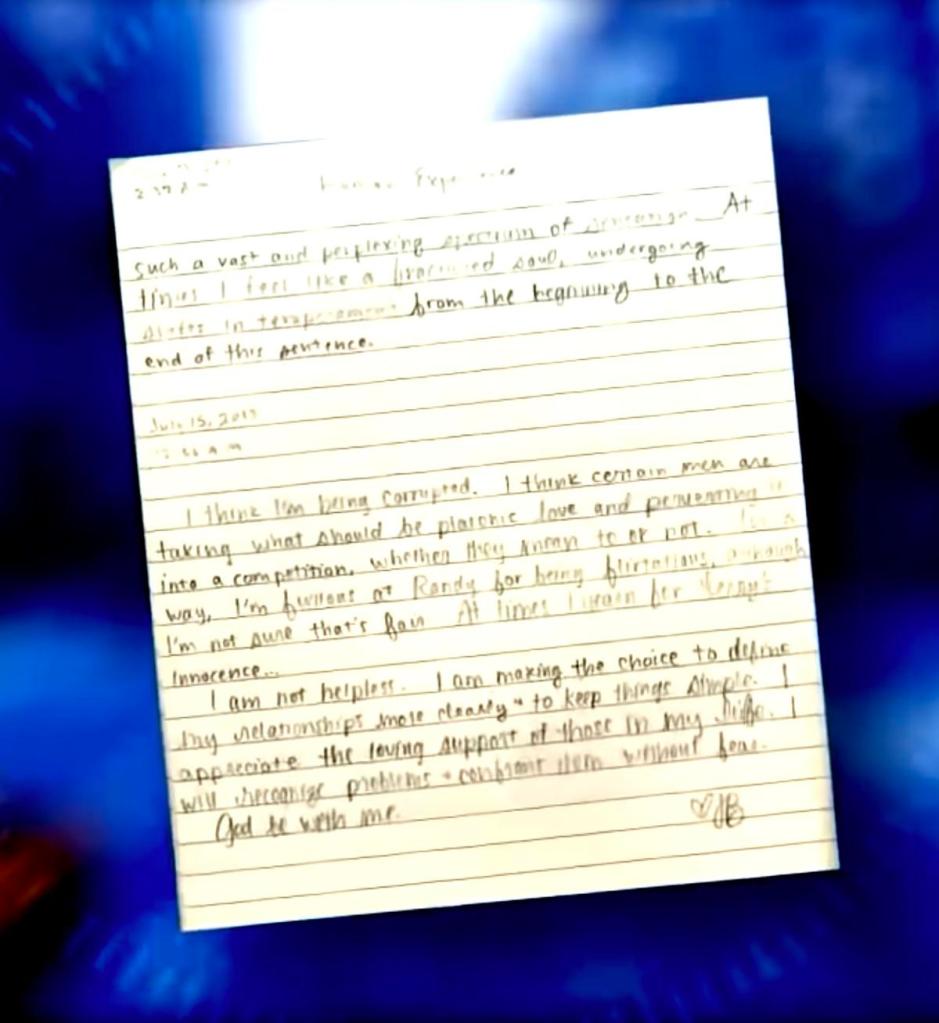 Human Experience
Such a vast and perplexing spectrum of At
times I feel like a fractured soul, undergoing
in from the beginning to the
end of this sentence.
July 15,
I think I'm being corrupted. I think certain men are
taking what should be platonic love and perverting it
into a competition, whether they mean to or not. In a
way, I'm furious at Randy for being flirtatious, although
I'm not sure that's fair. At times I yearn for
innocence...
I am not helpless. I am making the choice to define
my relationships more clearly + to keep things simple. I
appreciate the loving support of those in my life. I
will recognize problems + confront them without fear.
God be with me. ♡JB